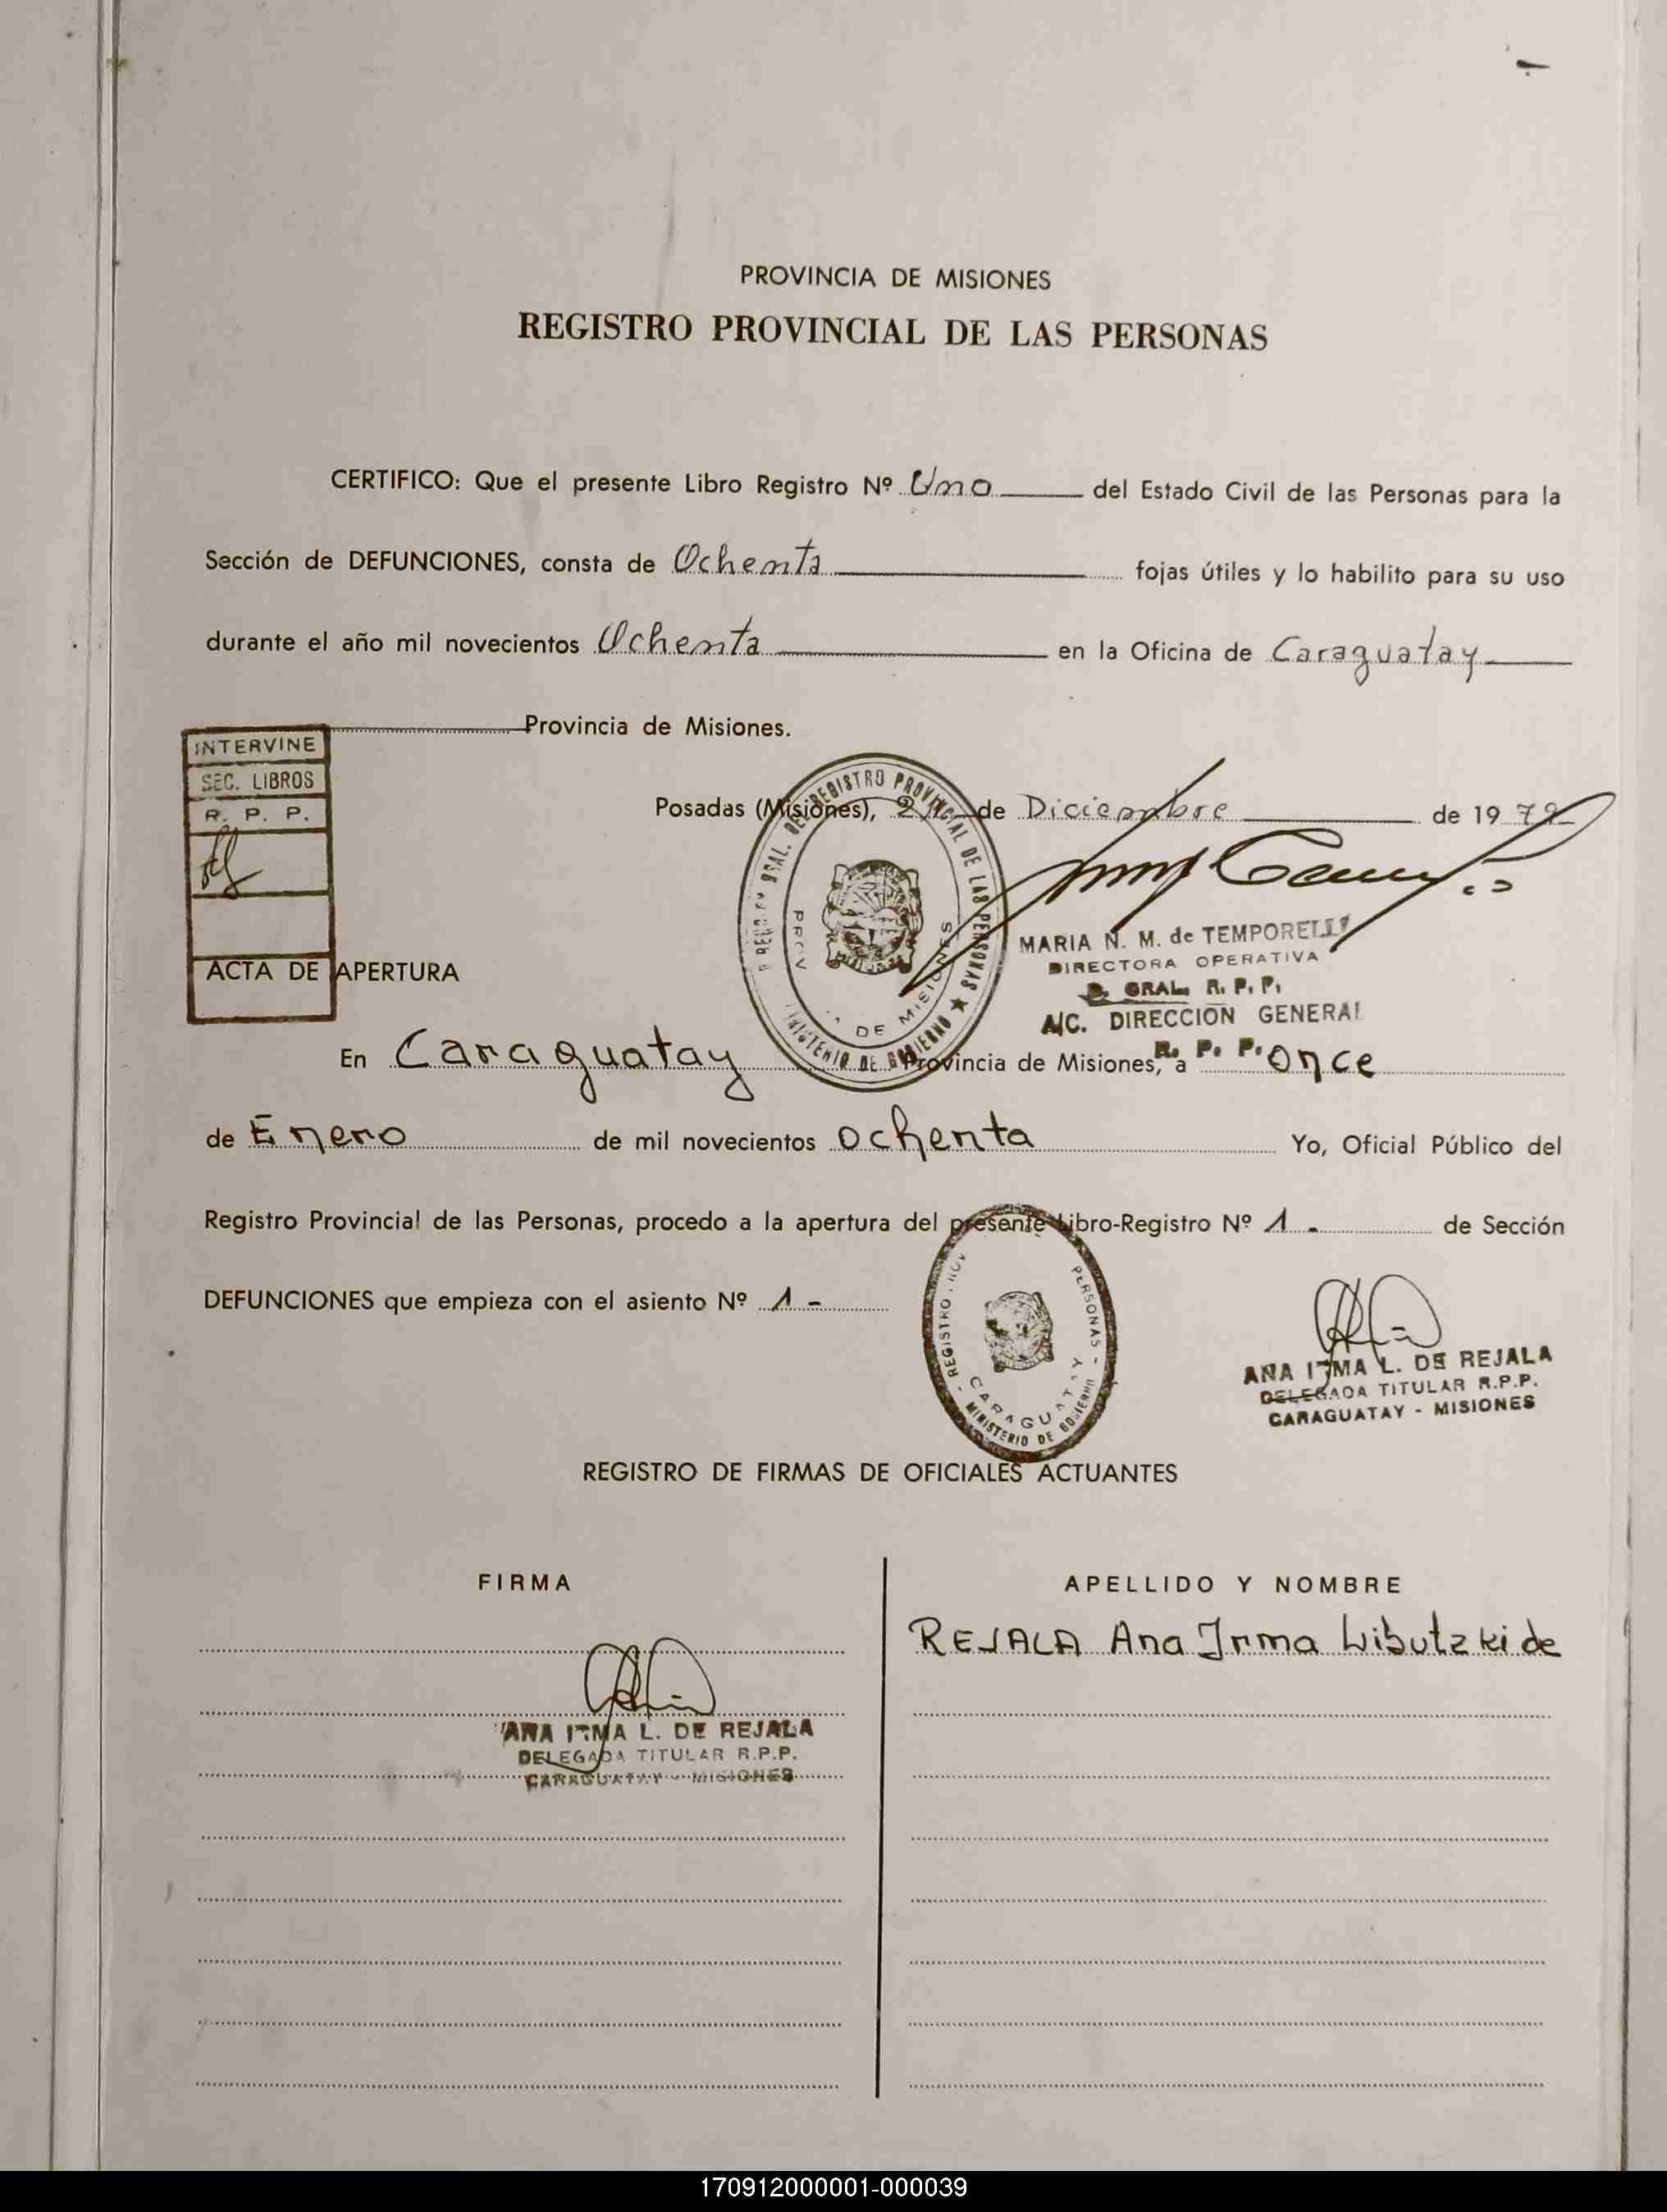 PROVINCIA DE MISIONES
REGISTRO PROVINCIAL DE LAS PERSONAS
CERTIFICO: Que el presente Libro Registro Nº Uno del Estado Civil de las Personas para la
Sección de DEFUNCIONES, consta de Ochenta fojas útiles y lo habilito para su uso
durante el año mil novecientos Ochenta en la Oficina de Caraguatay
Provincia de Misiones.
INTERVINE
SEC. LIBROS
R. P. P.
Posadas (Misiones), de Diciembre de 1979
REGISTRO PROVINCIAL DE LAS PERSONAS ★
MINISTERIO DE GOBIERNO
DE MISIONES
MARIA N. M. de TEMPORELLI
DIRECTORA OPERATIVA
GRAL. R. P. P.
A/C. DIRECCION GENERAL
R. P. P.
ACTA DE APERTURA
En Caraguatay Provincia de Misiones, a once
de Enero de mil novecientos ochenta Yo, Oficial Público del
Registro Provincial de las Personas, procedo a la apertura del presente Libro-Registro Nº 1 - de Sección
DEFUNCIONES que empieza con el asiento Nº 1 -
REGISTRO PERSONAS -
CARAGUATAY
MINISTERIO DE GOBIERNO
ANA IRMA L. DE REJALA
DELEGADA TITULAR R.P.P.
CARAGUATAY - MISIONES
REGISTRO DE FIRMAS DE OFICIALES ACTUANTES
FIRMA APELLIDO Y NOMBRE
REJALA Ana Irma de
ANA IRMA L. DE REJALA
DELEGADA TITULAR R.P.P.
CARAGUATAY - MISIONES
170912000001-000039